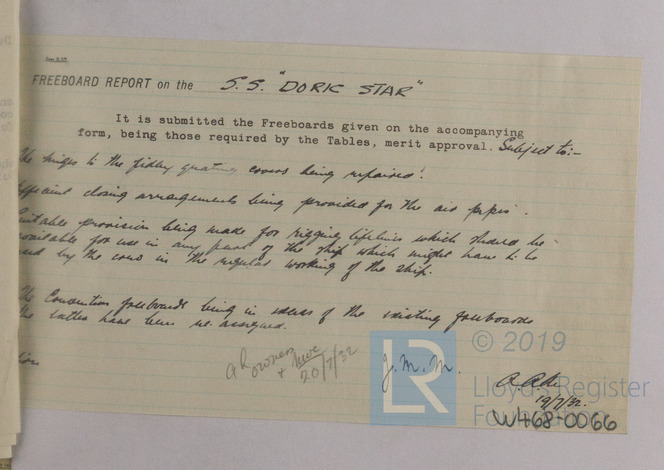 FREEBOARD REPORT on the S.S. "DORIC STAR"
It is submitted the Freeboards given on the accompanying
form, being those required by the Tables, merit approval. Subject to:-
he hinges to the fidley grating covers being repaired.
fficient closing arrangements being provided for the air pipes.
uitable provision being made for rigging lifelines which should be
available for use in any part of the ship which might have to be
used by the crew in the regular working of the ship.
he Convention freeboards being in excess of the existing freeboards
the latter have been re-assigned.
owners
+ 20/7/32
J.M.M.
19/7/32.
© 2019
LR
Lloyd's Register
Foundation
W468-0066